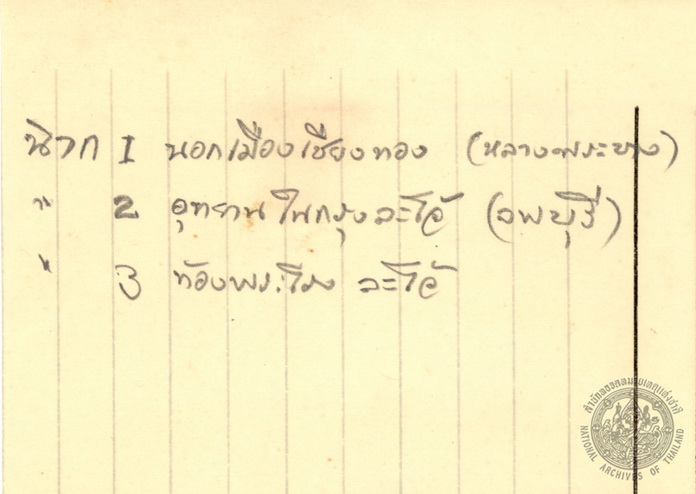 ฉาก 1 นอกเมืองเชียงทอง (หลวงพระบาง)
" 2 อุทยานในกรุงละโว้ (ลพบุรี)
" 3 ท้องพระโรง ละโว้
สำนักหอจดหมายเหตุแห่งชาติ
NATIONAL ARCHIVES OF THAILAND